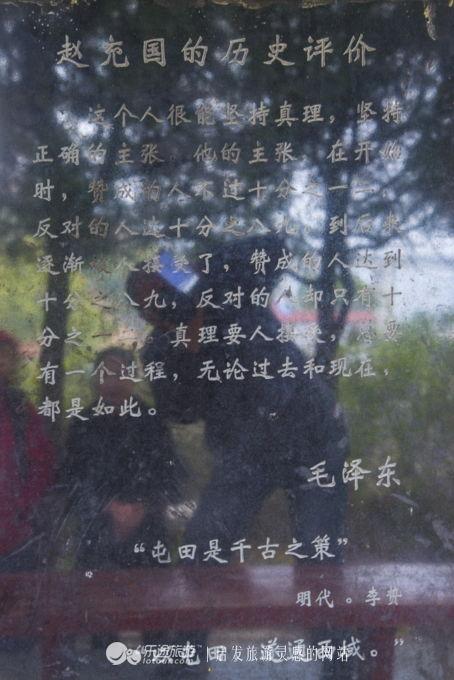 赵充国的历史评价
这个人很能坚持真理，坚持
正确的主张。他的主张，在开始
时，赞成的人不过十分之一二，
反对的人达十分之八九，到后来
逐渐被人接受了，赞成的人达到
十分之八九，反对的人却只有十
分之一二。真理要人接受，总要
有一个过程，无论过去和现在，
都是如此。
毛泽东
“屯田是千古之策”
明代 。李贽
屯田 道通 成。”
乐途旅游 lotour.com | 启发旅游灵感的网站